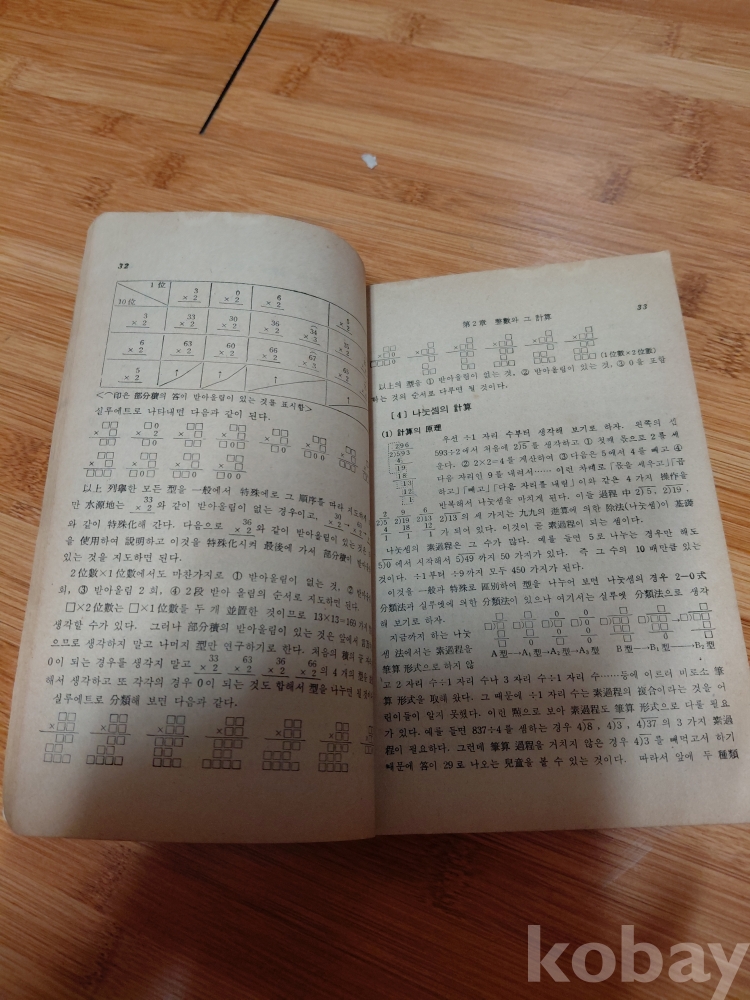 32
1位
10位
3 ×2
0 ×2
6 ×2
3 ×2
33 ×2
30 ×2
36 ×2
34 ×3
6 ×2
63 ×2
60 ×2
66 ×2
67 ×3
5 ×2
<⌒印은 部分積의 答이 받아올림이 있는 것을 표시함>
실루에트로 나타내면 다음과 같이 된다.
以上 列擧한 모든 型을 一般에서 特殊에로 그 順序를 따라
만 水源地는 33 ×2 와 같이 받아올림이 없는 경우이고,
와 같이 特殊化해 간다. 다음으로 36 ×2 와 같이 받아올림이 있는 것
을 使用하여 說明하고 이것을 特殊化시켜 最後에 가서 部分積이
있는 것을 지도하면 된다.
2位數×1位數에서도 마찬가지로 ① 받아올림이 없는 것, ②
회, ③ 받아올림 2회, ④ 2段 받아 올림의 순서로 지도하면 된다.
□×2位數는 □×1位數를 두 개 並置한 것이므로 13×13=169
생각할 수가 있다. 그러나 部分積의 받아올림이 있는 것은 앞에서
으므로 생각하지 말고 나머지 型만 연구하기로 한다. 처음의 積의
0이 되는 경우를 생각지 말고 33 ×2 63 ×2 36 ×2 66 ×2 의 4개의 型을
해서 생각하고 또 각각의 경우 0이 되는 것도 합해서 型을 나누면 될
실루에트로 分類해 보면 다음과 같다.
第2章 整數와 그 計算
33
(1位數×2位數)
以上의 型을 ① 받아올림이 없는 것, ② 받아올림이 있는 것, ③ 0을 포함
하는 것의 순서로 다루면 될 것이다.
[4] 나눗셈의 計算
(1) 計算의 原理
296
2)593
4
19
18
13
12
1
우선 ÷1 자리 수부터 생각해 보기로 하자. 왼쪽의 셈
593÷2에서 처음에 2)5를 생각하고 ① 첫째 몫으로 2를 세
운다. ② 2×2=4를 계산하여 ③ 다음은 5에서 4를 빼고 ④
다음 자리인 9를 내려서…… 이런 차례로 「몫을 세우고」「곱
하고」「빼고」「다음 자리를 내림」이와 같은 4가지 操作을
반복해서 나눗셈을 마치게 된다. 이들 過程 中 2)5, 2)19,
2)13의 세 가지는 九九의 逆算에 의한 除法(나눗셈)이 基礎
가 되어 있다. 이것이 곧 素過程이 되는 셈이다.
2 9 6
2)5 2)19 2)13
4 18 12
1 1 1
나눗셈의 素過程은 그 수가 많다. 예를 들면 5로 나누는 경우만 해도
5)0에서 시작해서 5)49까지 50가지가 있다. 즉 그 수의 10배만큼 있는
것이다. ÷1부터 ÷9까지 모두 450가지가 된다.
이것을 一般과 特殊로 區別하여 型을 나누어 보면 나눗셈의 경우 2—0式
分類法과 실루엣에 의한 分類法이 있으나 여기서는 실루엣 分類法으로 생각
해 보기로 하자.
지금까지 하는 나눗
셈 法에서는 素過程을
筆算 形式으로 하지 않
A型—→A₁型—→A₂型 B型—→B₁型——→B₂型
고 2자리 수÷1자리 수나 3자리 수÷1자리 수……등에 이르러 비로소 筆
算 形式을 取해 왔다. 그 때문에 ÷1자리 수는 素過程의 複合이라는 것을 어
린이들이 알지 못했다. 이런 點으로 보아 素過程도 筆算 形式으로 다룰 필요
가 있다. 예를 들면 837÷4를 셈하는 경우 4)8, 4)3, 4)37의 3가지 素過
程이 필요하다. 그런데 筆算 過程을 거치지 않은 경우 4)3를 빼먹고서 하기
때문에 答이 29로 나오는 兒童을 볼 수 있는 것이다. 따라서 앞에 두 種類
kobay